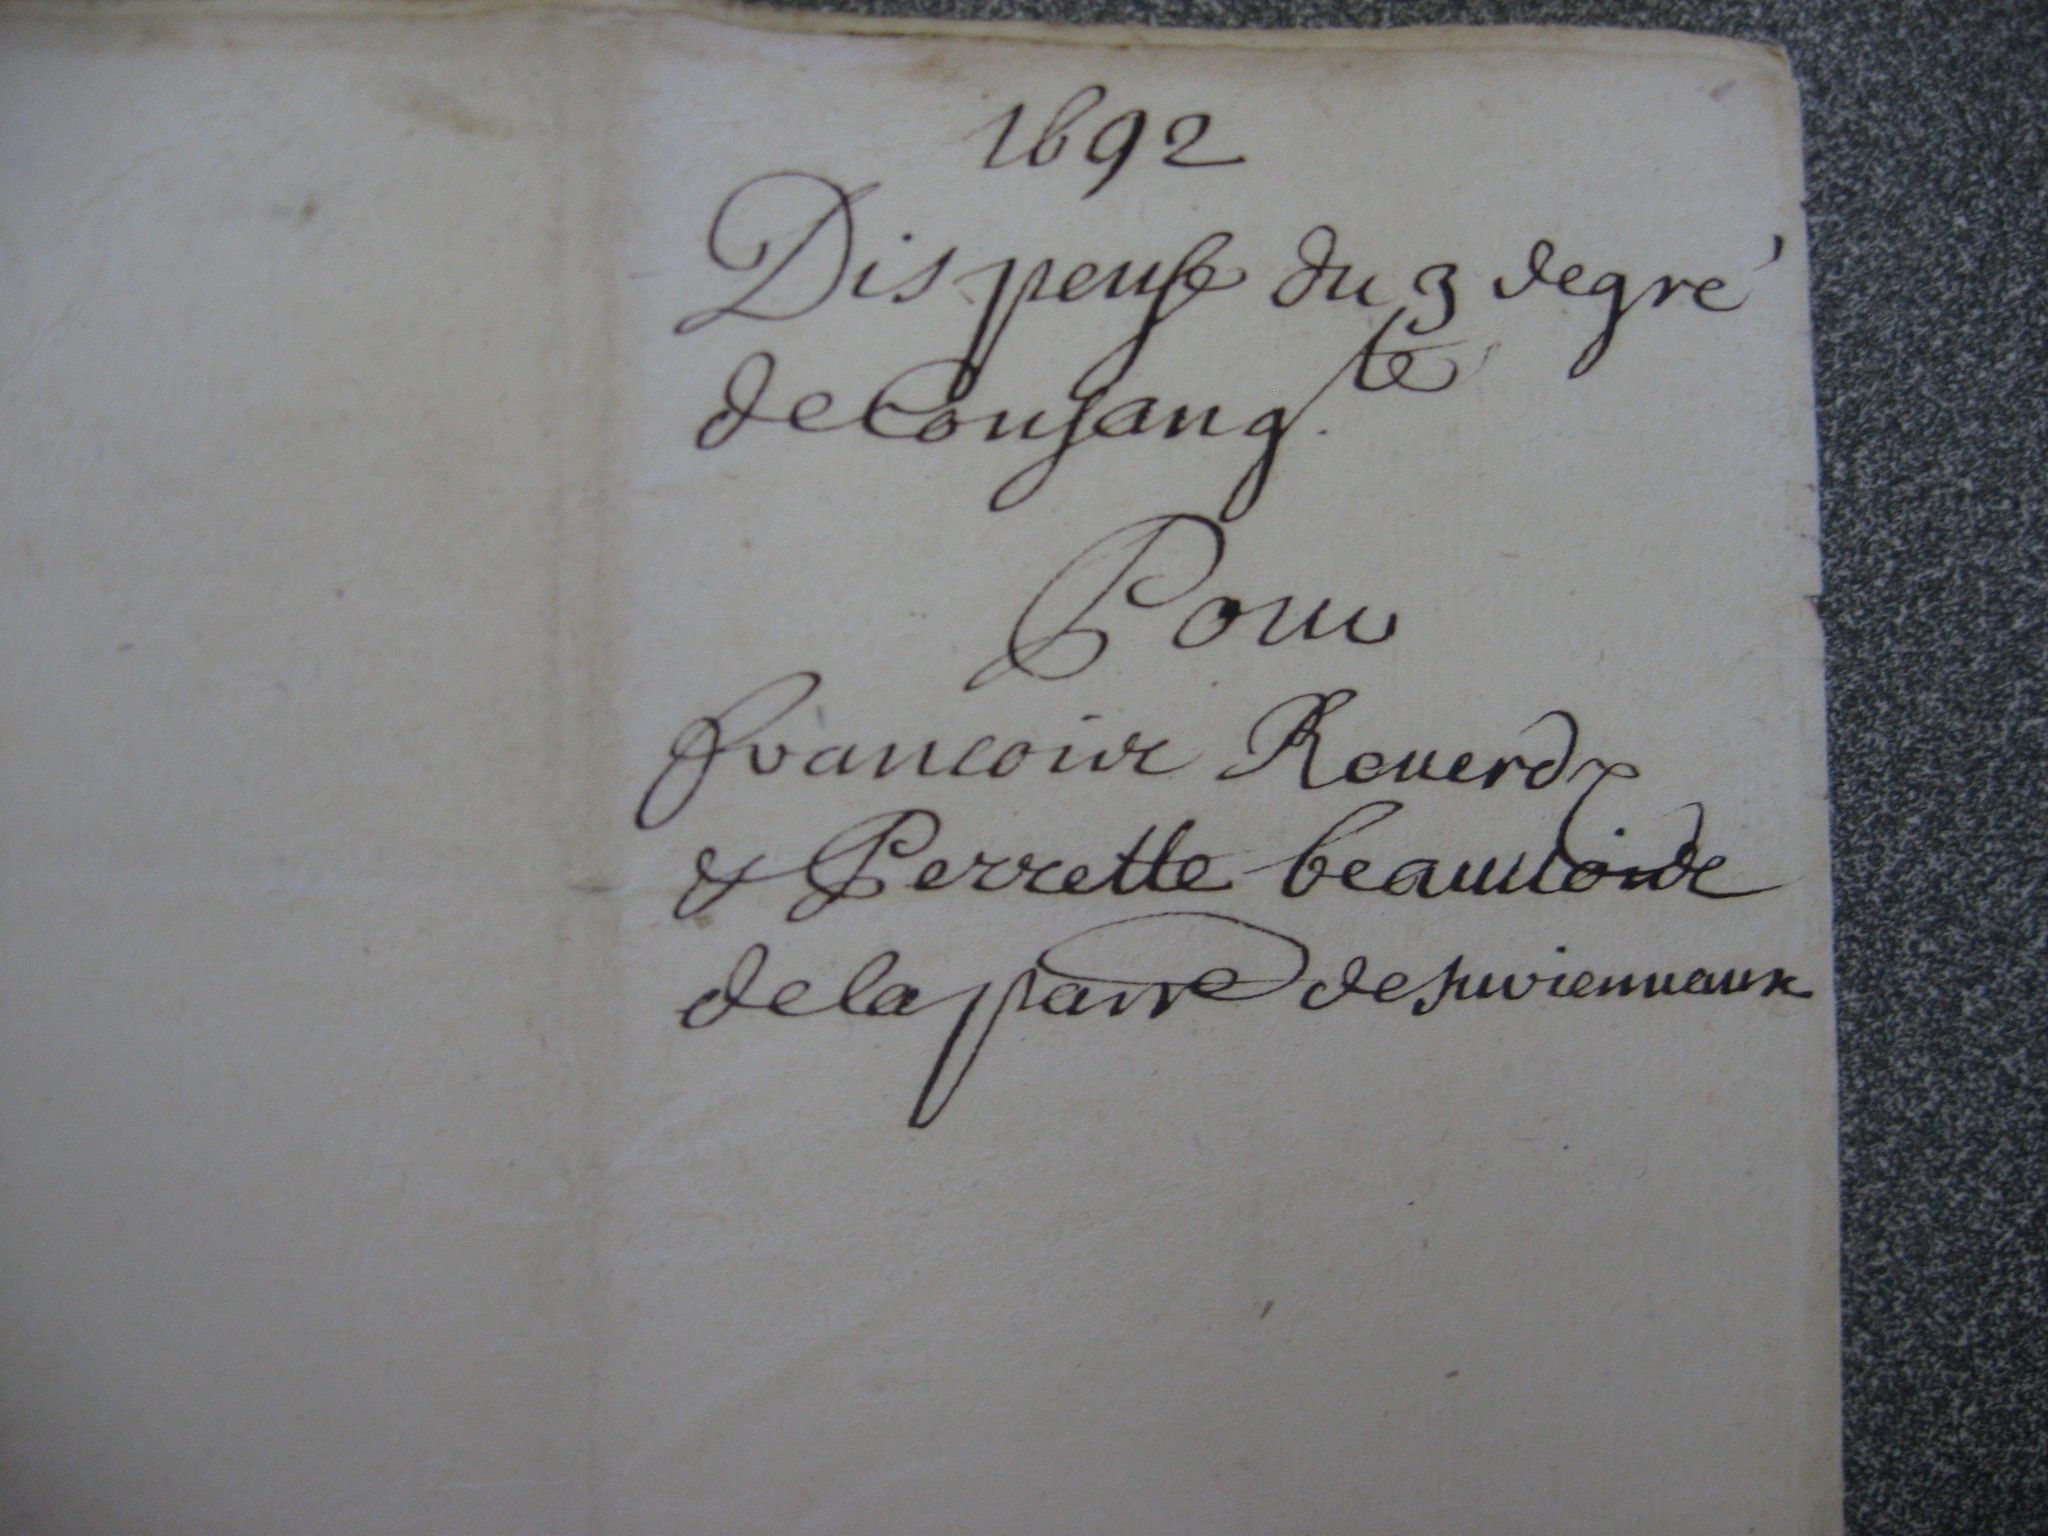 1692
Dispense du 3 degré
de Consang.te
Pour
francoise Reuerdy
& Perrette beauuoide
de la parre de